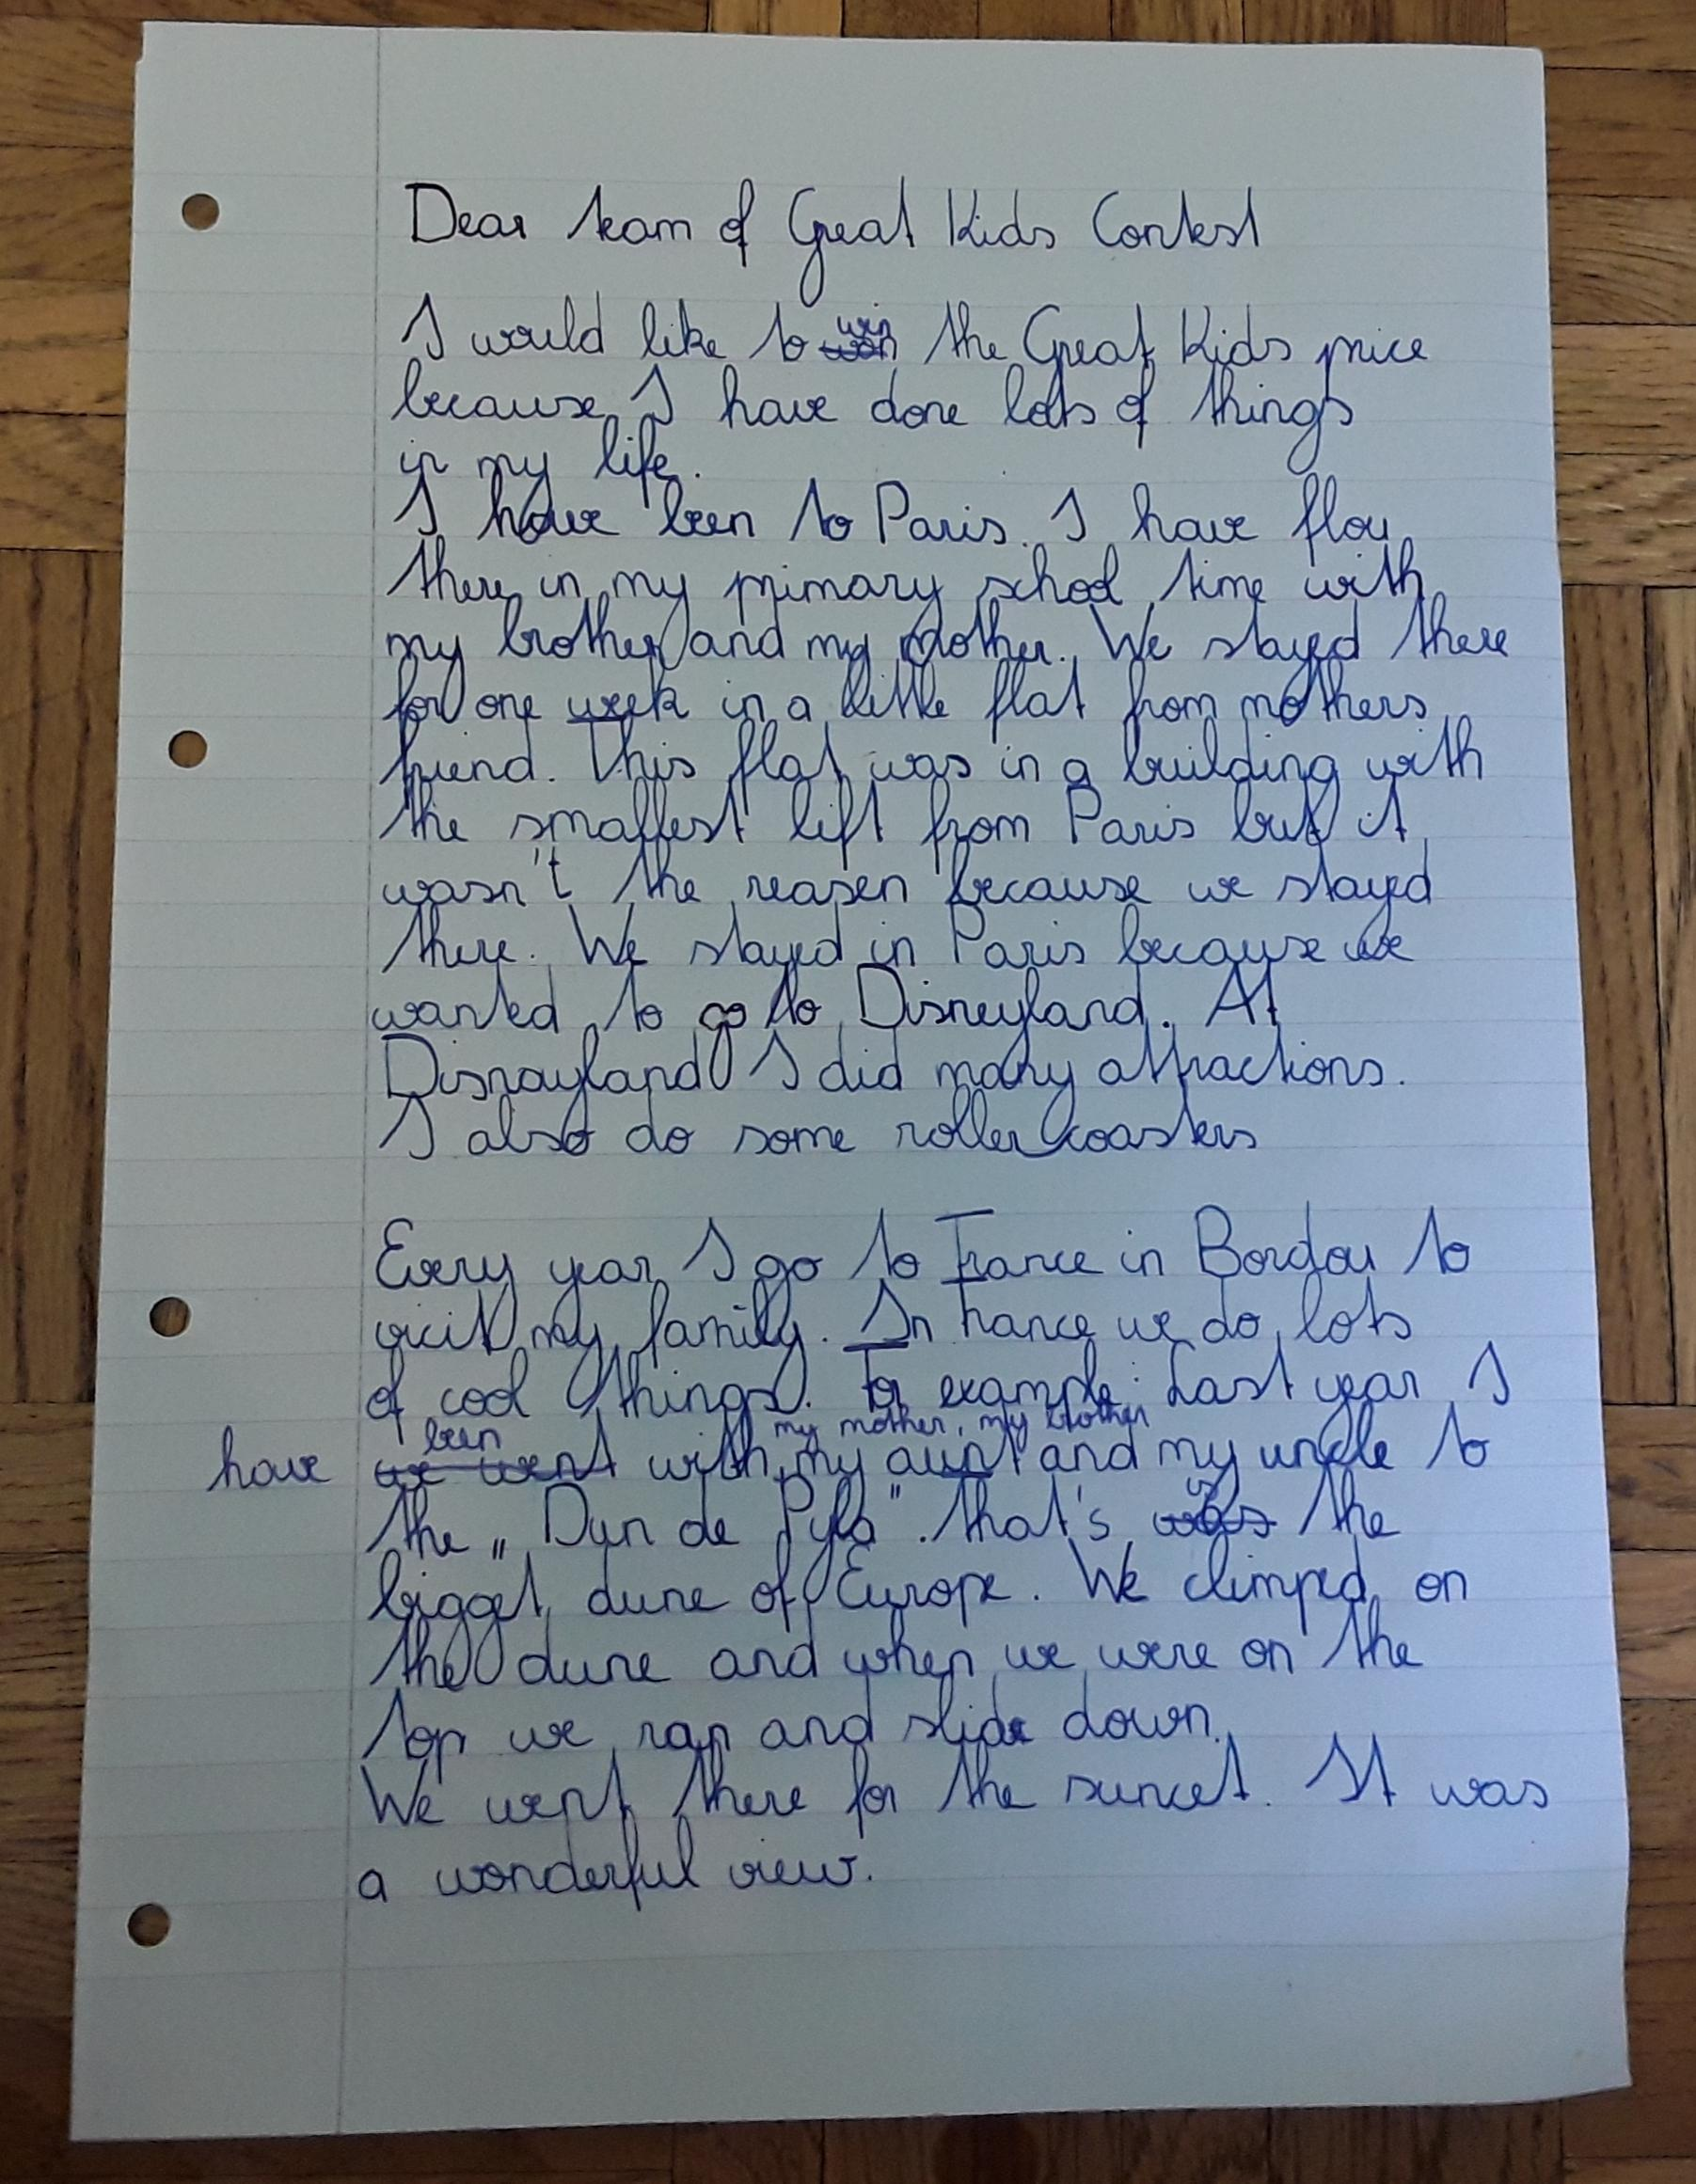 Dear team of Great Kids Contest
I would like to win the Great Kids price
because I have done lots of things
in my life.
I have been to Paris. I have flou
there in my primary school time with
my brother and my mother. We stayed there
for one week in a little flat from mothers
friend. This flat was in a building with
the smallest lift from Paris but it
wasn't the reasen because we stayed
there. We stayed in Paris because we
wanted to go to Disneyland. At
Disnayland I did many attractions.
I also do some roller coasters
Every year I go to France in Bordou to
vicit my family. In France we do lots
of cool things. For example: Last year I
have been with my mother, my brother my aunt and my uncle to
the „Dun de Pyla". that's is the
bigget dune of Europe. We climped on
the dune and when we were on the
top we ran and slide down.
We went there for the suncet. It was
a wonderful view.